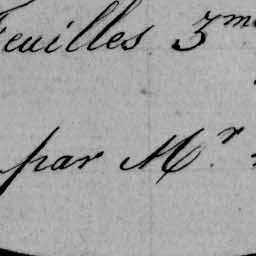 Feuilles 3me
par Mr.